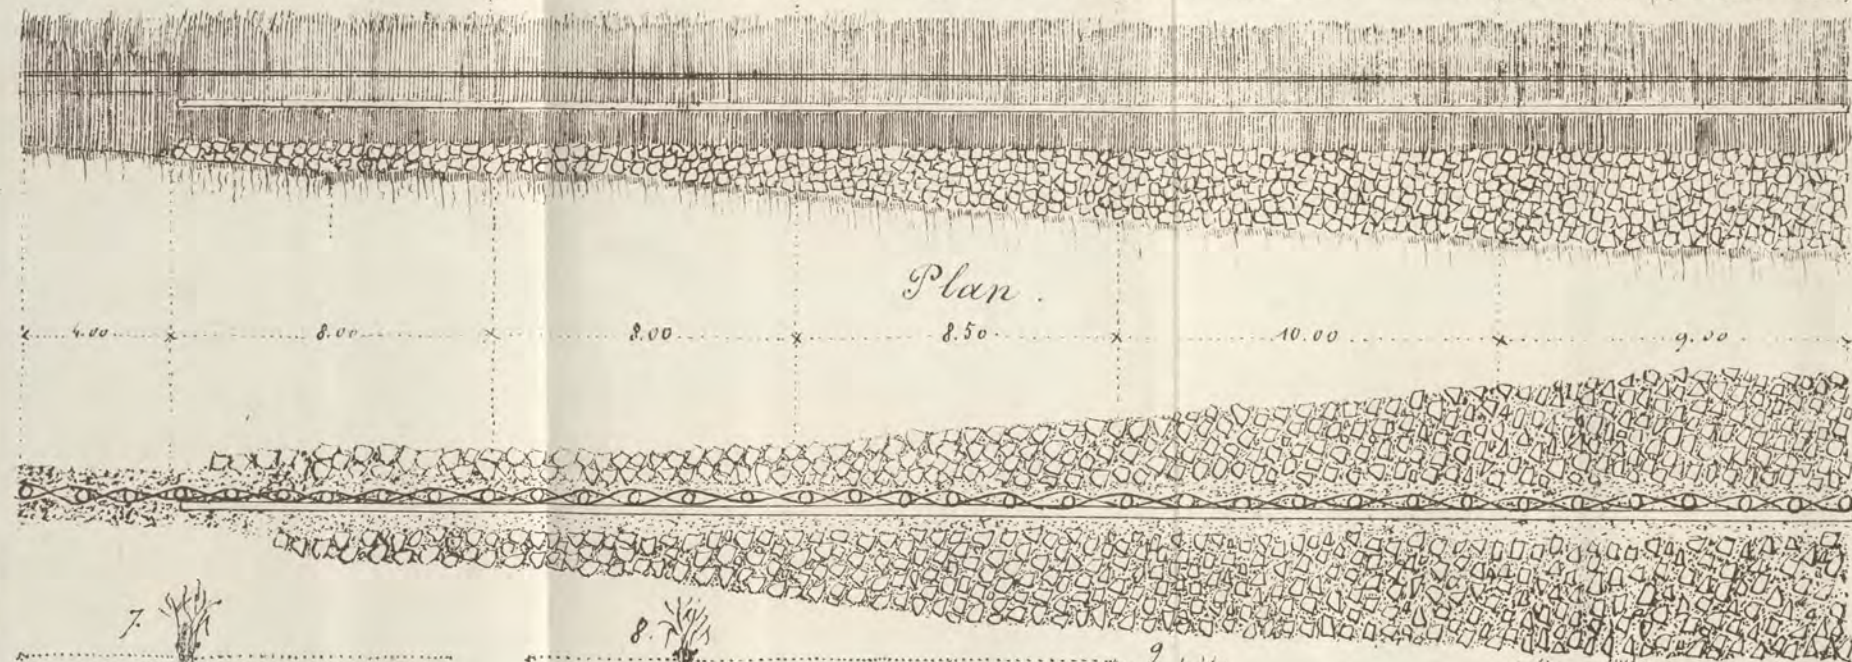 Plan.
4.00 8.00 8.00 8.50 10.00 9.00
7. 8. 9